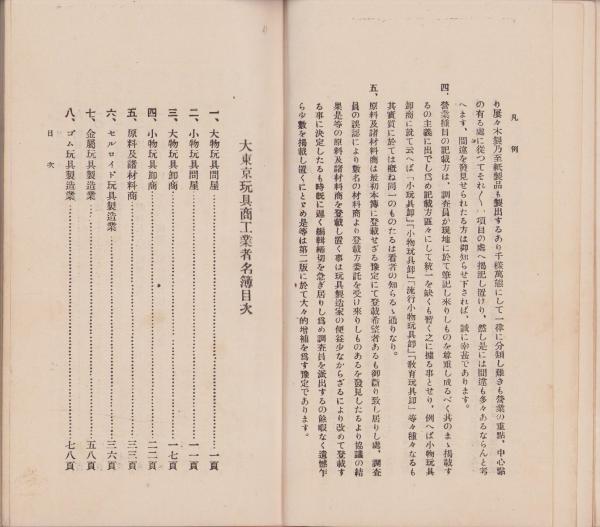 凡例
り屢々木製乃至紙製品も製出するあり千樣萬態にして一律に分知し難きも營業の重點、中心點
の有る處に從つてそれ〲項目の處へ揭記し置けり、然し是には間違も多々あるならんと考
へます、間違を發見せられたる方は御知らせ下されば、誠に幸甚であります。
四、營業種目の記載方は、調査員が現地に於て筆記し來りしものを尊重し成るべく其のまゝ揭載す
るの主義に出でし爲め記載方區々にして統一を缺くも暫く之に據る事とせり、例へば小物玩具
卸商に就て云へば「小玩具卸」「小物玩具卸」「流行小物玩具卸」「敎育玩具卸」等々種々なるも
其實質に於ては槪ね同一のものたるは看者の知らるゝ通りなり。
五、原料及諸材料商は最初本簿に登載せざる豫定にて登載希望者あるも御斷り致し居りし處、調査
員の誤認により數名の材料商より登載方委託を受け來りしものあるを發見したるより協議の結
果是等の原料及諸材料商を登載し置く事は玩具製造家の便益少なからざるにより改めて登載す
る事に決定したるも時旣に遲く編輯締切を急ぎ居りし爲め調査員を派出するの餘暇なく遺憾乍
ら少數を揭載し置くにとゞめ是等は第二版に於て大々的增補を爲す豫定であります。
大東京玩具商工業者名簿目次
一、大物玩具問屋……一頁
二、小物玩具問屋……一一頁
三、大物玩具卸商……一七頁
四、小物玩具卸商……二二頁
五、原料及諸材料商……三三頁
六、セルロイド玩具製造業……三六頁
七、金屬玩具製造業……五八頁
八、ゴム玩具製造業……七八頁
目次